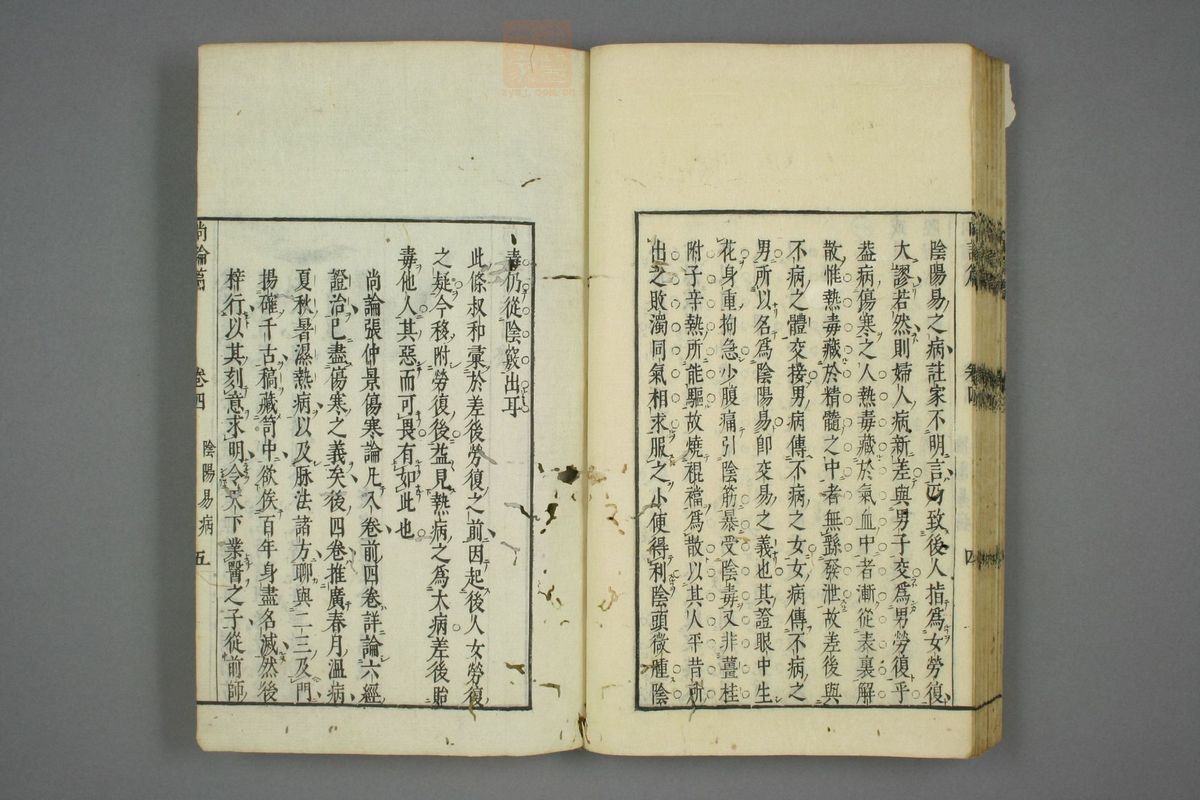 陰陽易之病註家不明言乃致後人指爲女勞復
大謬若然則婦人病新差與男子交爲男勞復乎
葢病傷寒之人熱毒藏於氣血中者漸從表裏解
散惟熱毒藏於精髓之中者無繇發泄故差後與
不病之體交接男病傳不病之女女病傳不病之
男所以名爲陰陽易卽交易之義也其證眼中生
花身重拘急少腹痛引陰筋暴受陰毒又非薑桂
附子辛熱所能驅故燒裩襠爲散以其人平昔所
出之敗濁同氣相求服之小便得利陰頭微腫陰
毒仍從陰竅出耳
此條叔和彚於差後勞復之前因起後人女勞復
之疑今移附勞復後益見熱病之爲大病差後貽
毒他人其惡而可畏有如此也
尚論張仲景傷寒論凡八卷前四卷詳論六經
證治已盡傷寒之義矣後四卷推廣春月溫病
夏秋暑濕熱病以及脉法諸方聊與二三及門
揚確千古稿藏笥中欲俟百年身盡名滅然後
梓行以其刻意求明令天下業醫之子從前師
尚論篇 卷四 陰陽易病 五